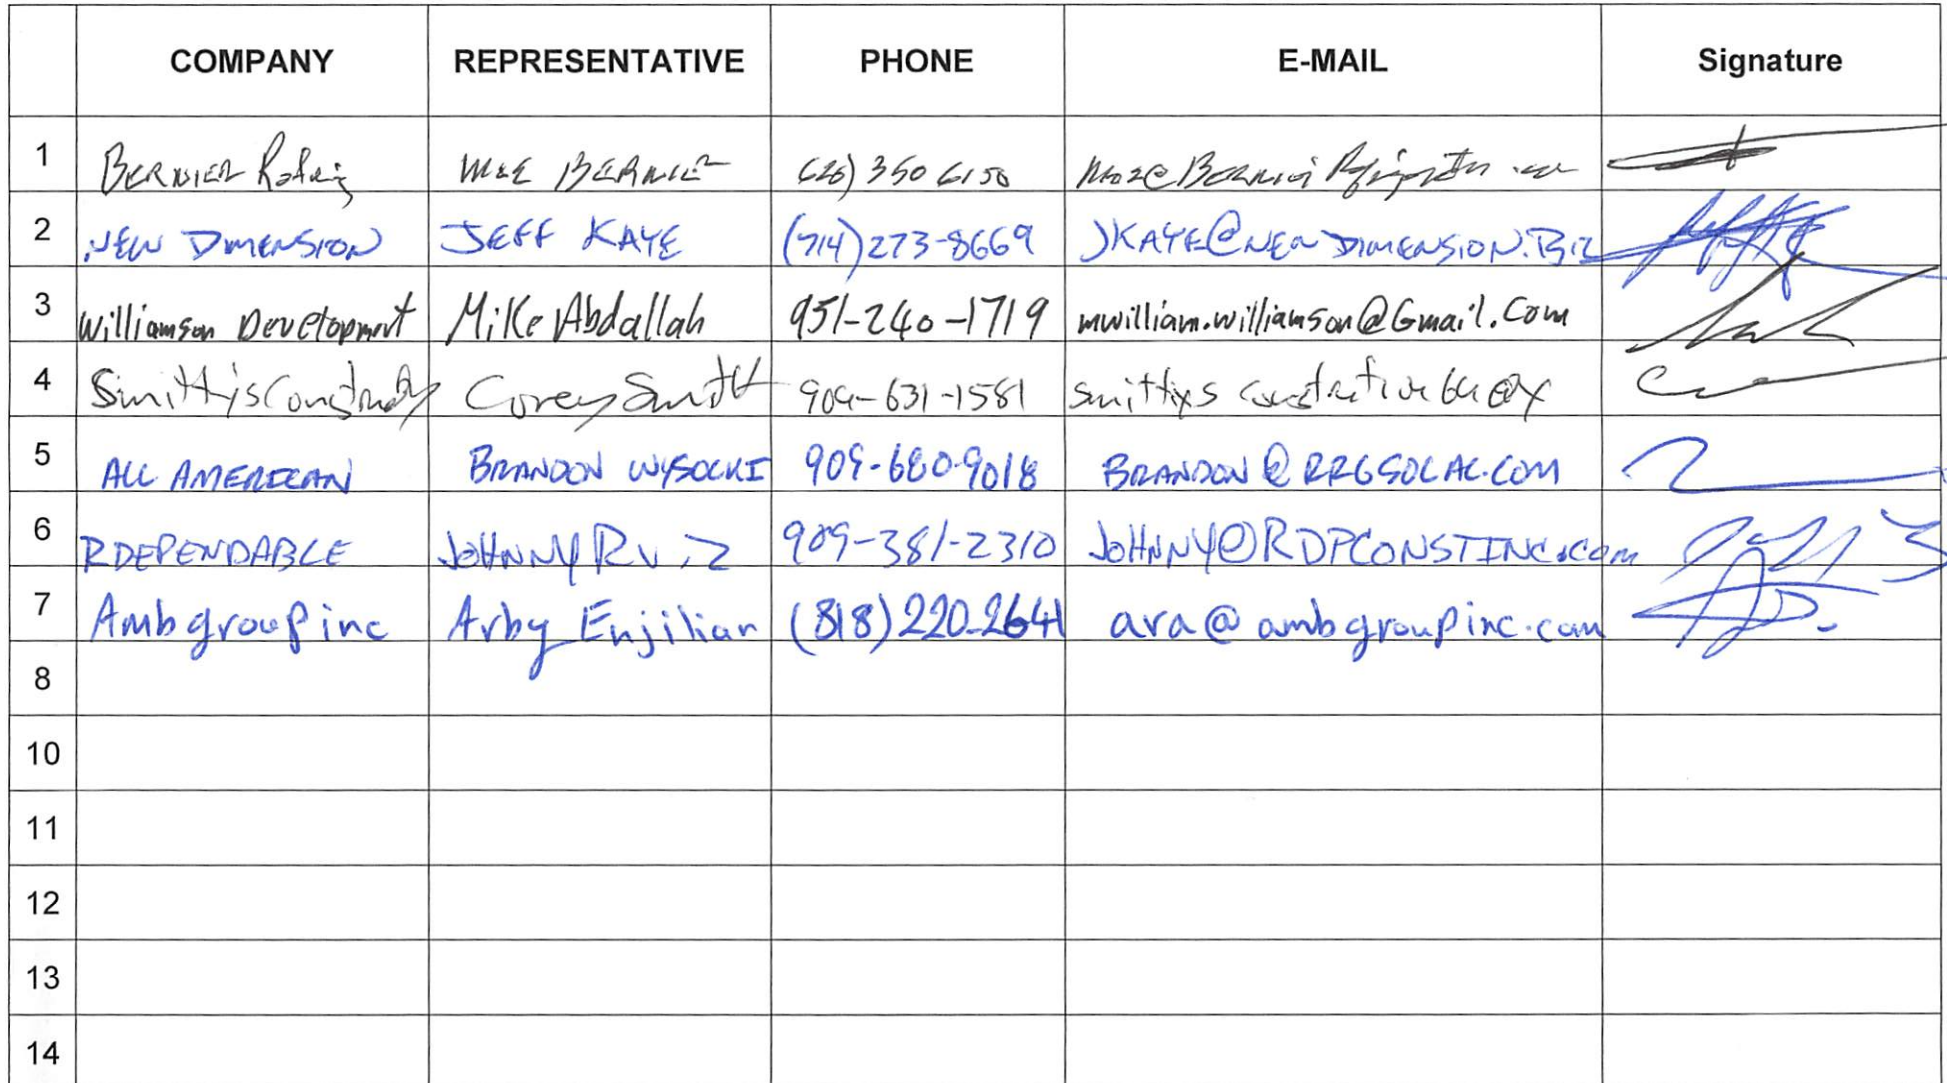 COMPANY REPRESENTATIVE PHONE E-MAIL Signature
1 BERNIER BERNIER (626) 350 6150
2 NEW DIMENSION JEFF KAYE (714)273-8669 JKAYE@NEWDIMENSION.BIZ
3 Williamson Development Mike Abdallah 951-240-1719 mwilliam.williamson@Gmail.Com
4 Corey Smith 909-631-1581
5 ALL AMERICAN BRANDON WYSOCKI 909-680-9018 BRANDON@RRGSOCAL.COM
6 RDEPENDABLE JOHNNY RUIZ 909-381-2310 JOHNNY@RDPCONSTINC.COM
7 Ambgroup inc Arby Enjilian (818)220-2641 ara@ambgroupinc.com
8
10
11
12
13
14